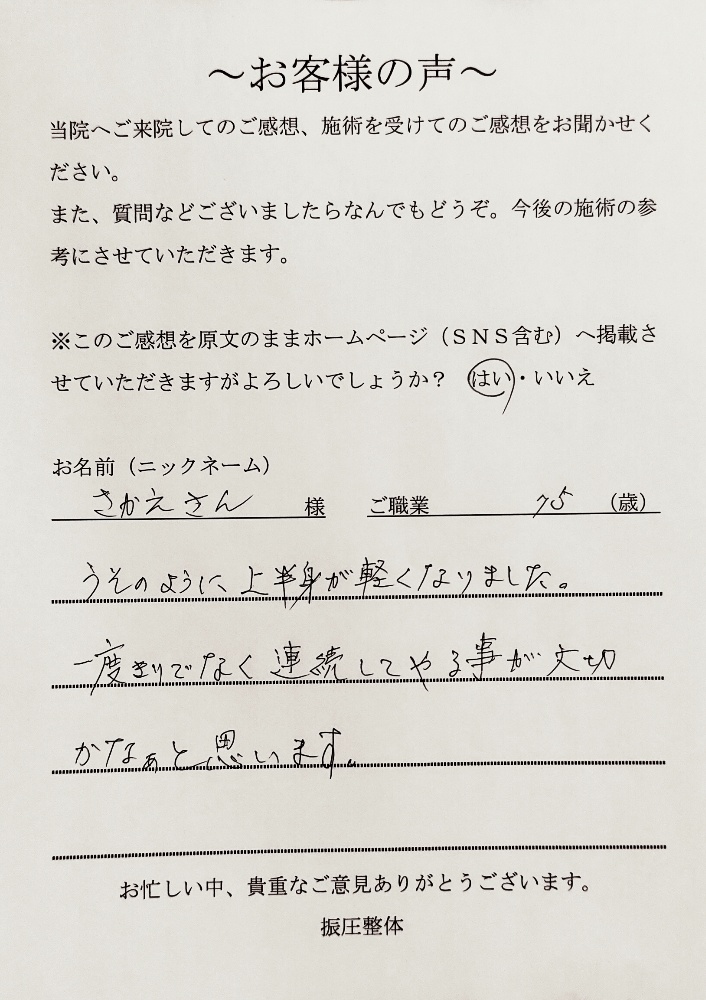 ～お客様の声～
当院へご来院してのご感想、施術を受けてのご感想をお聞かせく
ださい。
また、質問などございましたらなんでもどうぞ。今後の施術の参
考にさせていただきます。
※このご感想を原文のままホームページ（ＳＮＳ含む）へ掲載さ
せていただきますがよろしいでしょうか？　はい・いいえ
お名前（ニックネーム）
さかえさん　様　ご職業　75　（歳）
うそのように、上半身が軽くなりました。
一度きりでなく連続してやる事が大切
かなぁと思います。
お忙しい中、貴重なご意見ありがとうございます。
振圧整体